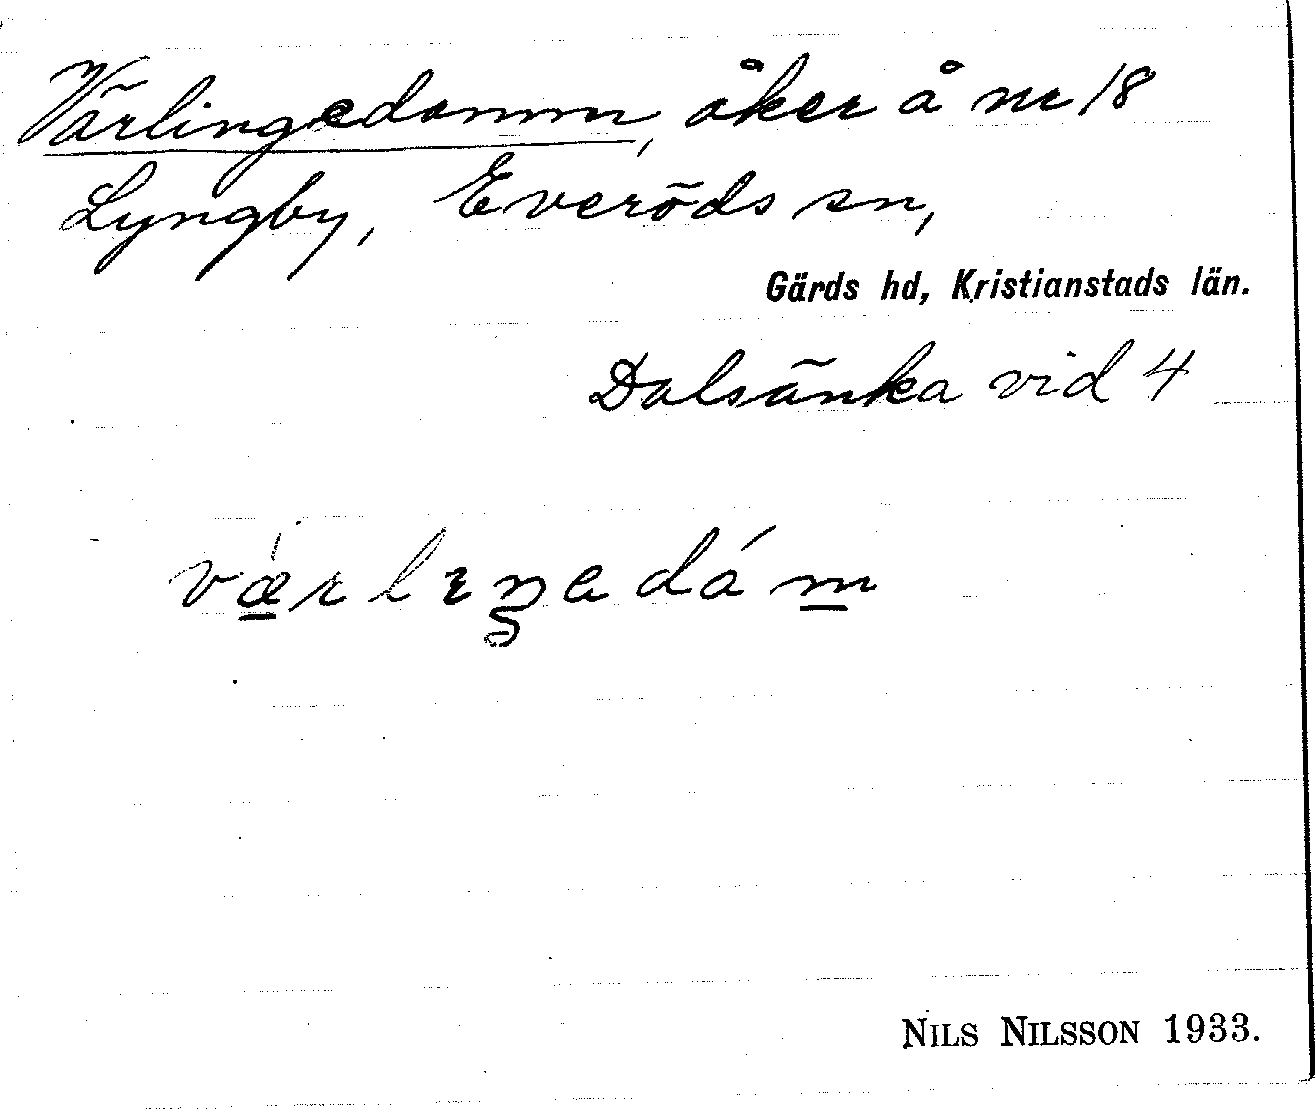 Värlingedamm, åker å nr 18
Lyngby, Everöds sn,
Gärds hd, Kristianstads län.
Dalsänka vid 4
vǽrlıŋadám
NILS NILSSON 1933.